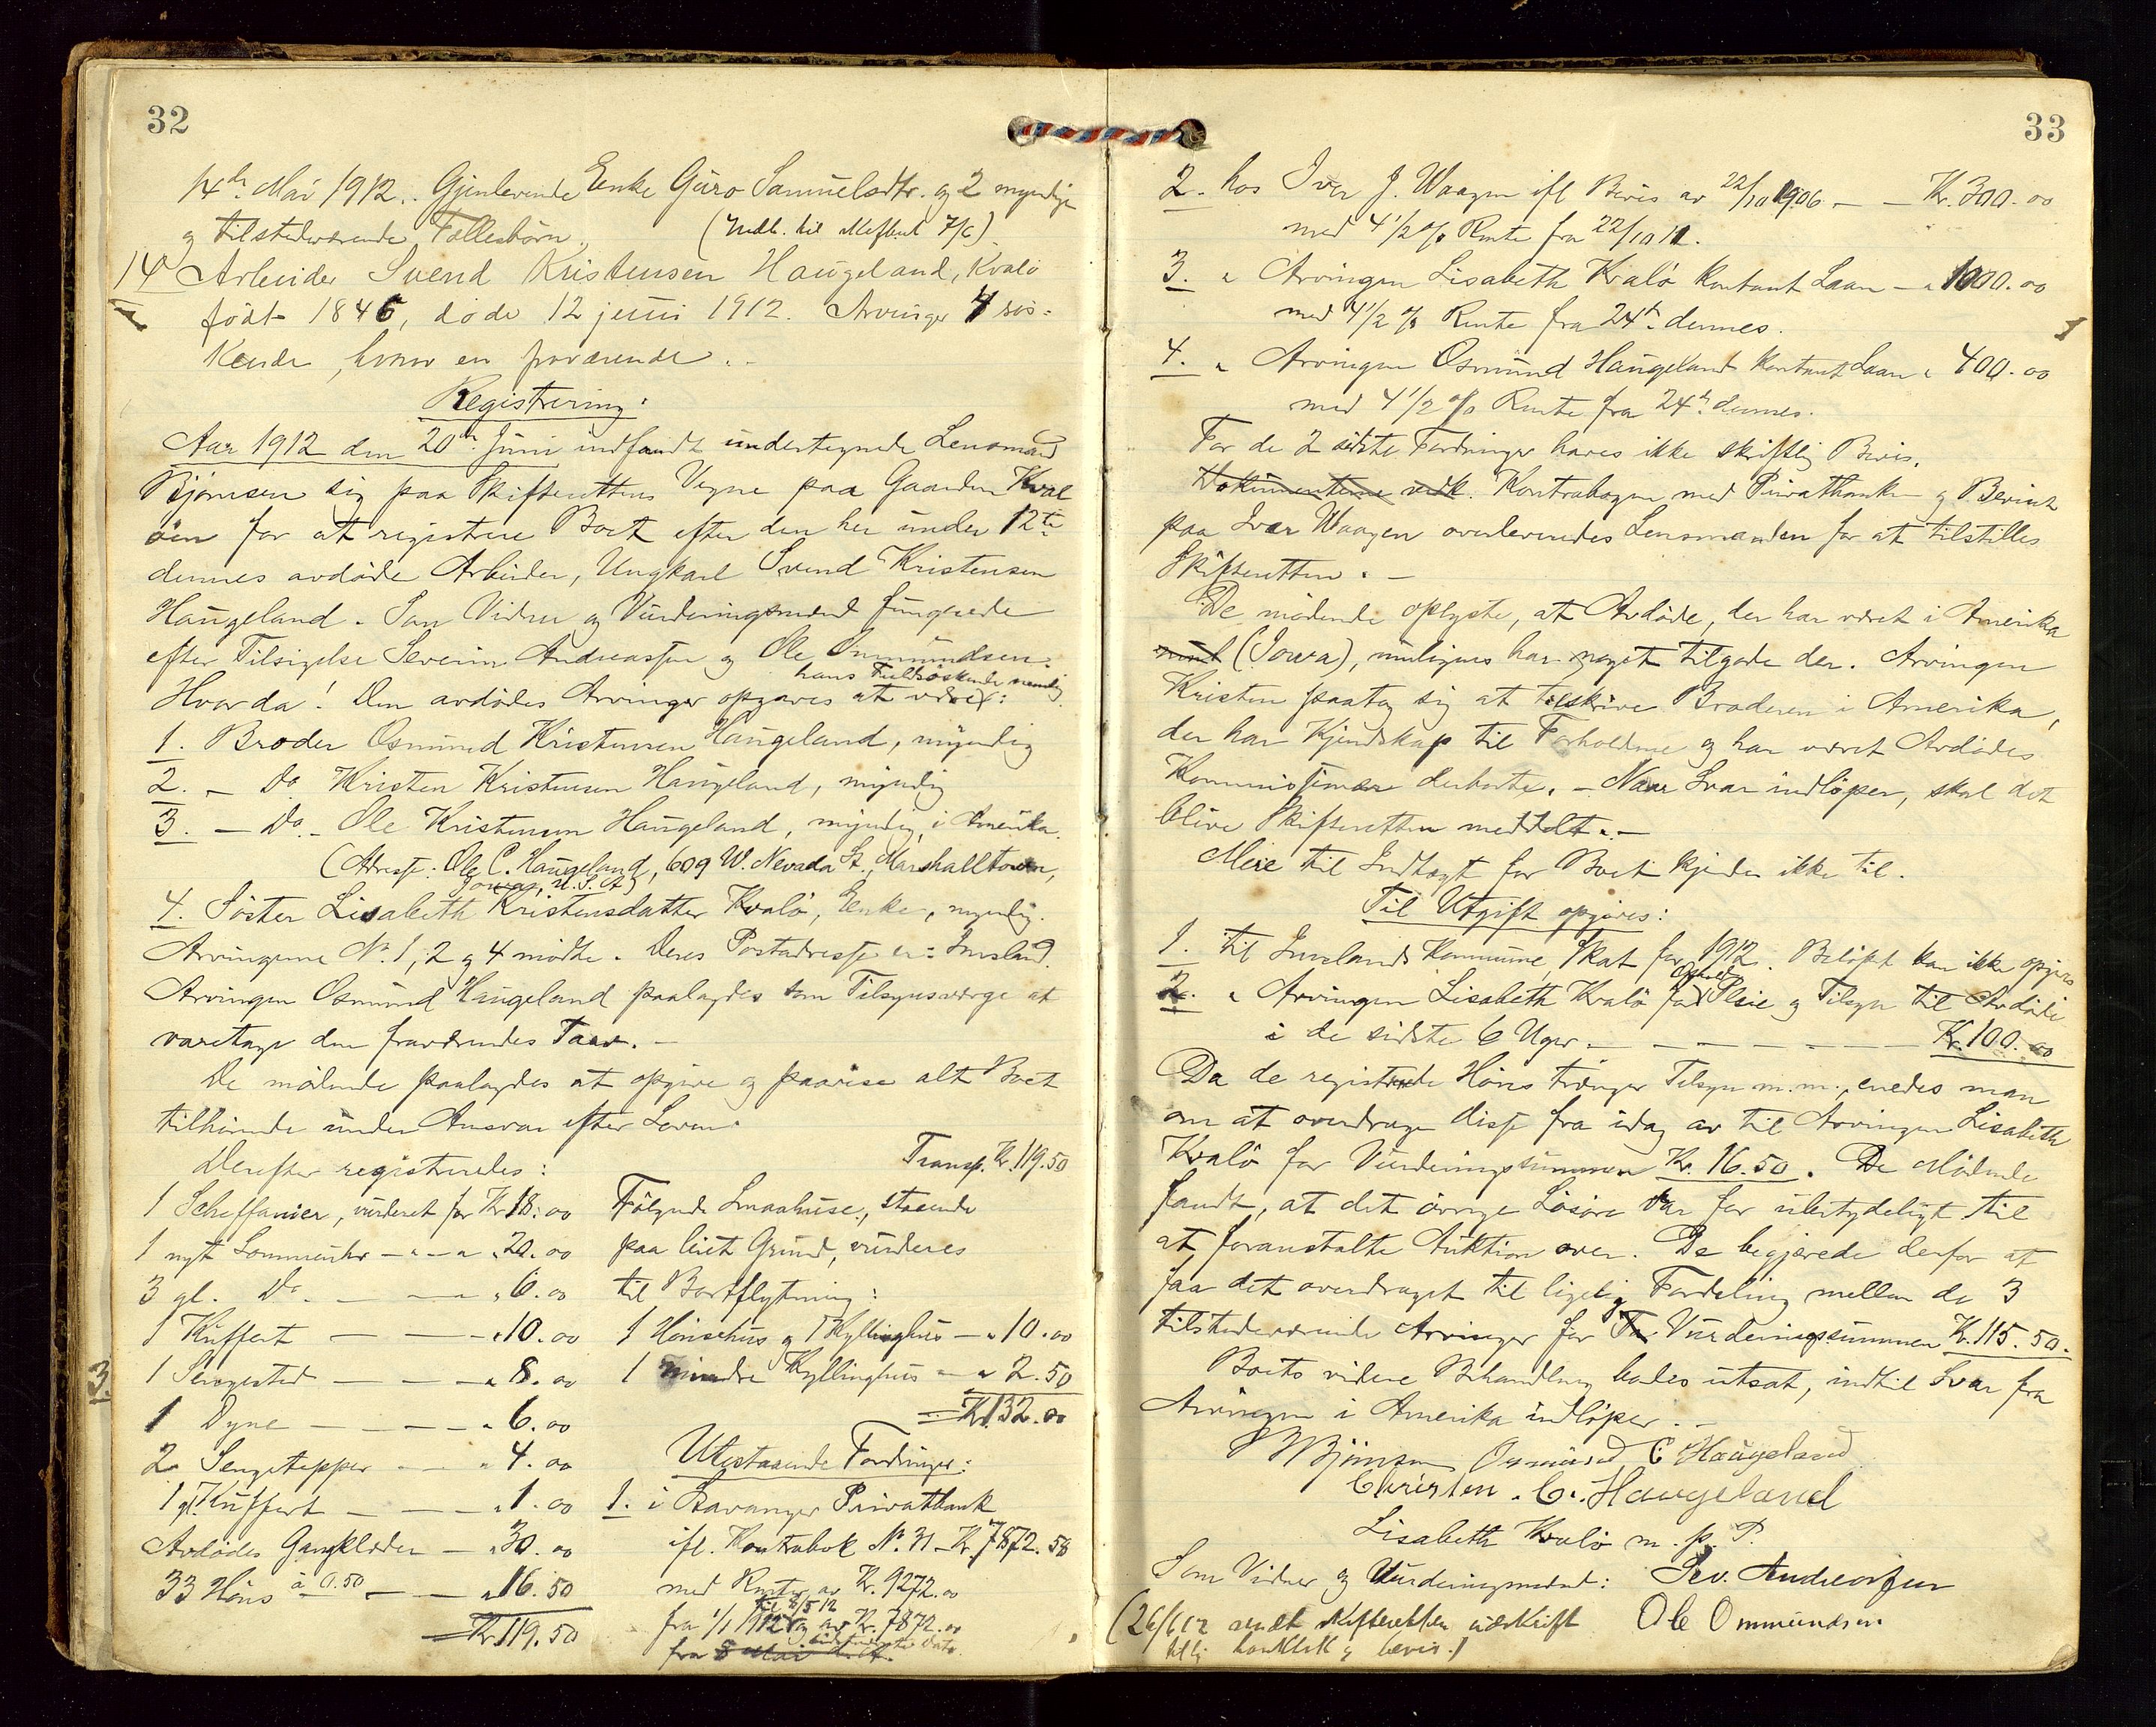 32
14de Mai 1912. Gjenlevende Enke Guro Samuelsdtr. og 2 myndige
og tilstedeværende Fællesbörn. (Indb. til Skifteret 7/6)
14 Arbeider Svend Kristensen Haugeland, Kvalö
født 1846, døde 12 juni 1912. Arvinger 4 søs-
kende, hvorav en fraværende.
Registrering:
Aar 1912 den 20de Juni indfandt undertegnede Lensmand
Bjönsen sig paa Skifterettens Vegne paa Gaarden Kval
öen for at registrere Boet efter den her under 12te
dennes avdöde Arbeider, Ungkarl Svend Kristensen
Haugeland. Som Vidner og Vurderingsmænd fungerede
efter Tilsigelse Severin Andreassen og Ole Ommundsen.
hans Fuldsöskende nemlig
Hvorda! Den avdödes Arvinger opgaves at være:
1. Broder Osmund Kristensen Haugeland, myndig
2. - Do Kristen Kristensen Haugeland, myndig
3. - Do - Ole Kristensen Haugeland, myndig, i Amerika.
(Adresse: Ole C. Haugeland, 609 W. Nevada St., Marshalltown,
Jowas, U.S.A)
4. Söster Lisabeth Kristensdatter Kvalö, Enke, myndig.
Arvingerne No 1, 2 og 4 mödte. Deres Postadresse er: Imsland.
Arvingen Osmund Haugeland paalagdes som Tilsynsværge at
varetage den fraværendes Tarv. -
De mödende paalagdes at opgive og paavise alt Boet
tilhörende under Ansvar efter Loven.
Derefter registreredes:
1 Scheffanier, vurderet for Kr 18.00
1 nyt Lommeuhr - " - " " 20.00
3 gl. Do. - - " 6.00
1 Kuffert - - - " 10.00
3.
1 Sengested - - - " 8.00
1 Dyne - - - " 6.00
2 Sengetepper - - " 4.00
1 gl. Kuffert - - - " 1.00
Avdödes Gangklæder - " 30.00
33 Höns à 0.50 - - " 16.50
Kr. 119.50
Transp. Kr. 119.50
Fölgende Smaahuse, staaende
paa leiet Grund, vurderes
til Bortflytning:
1 Hönsehus og 1 Kyllinghus - " 10.00
1 mindre Kyllinghus - " 2.50
Kr. 132.00
Utestaaende Fordringer:
1. i Stavanger Privatbank
ifl. Kontrabok No. 31 - Kr. 7872.58
med Renter av Kr. 9272.00
til 8/5 12
fra 1/1 1912 og av Kr. 7872.00
fra 8 Mai d. A.
33
2. hos Iver J. Waagen ifl Bevis av 22/10 1906 - - Kr. 300.00
med 4 1/2 % Rente fra 22/10 11.
3. " Arvingen Lisabeth Kvalö kontant Laan - " 1000.00
med 4 1/2 % Rente fra 24de dennes.
4. " Arvingen Osmund Haugeland kontant Laan " 400.00
med 4 1/2 % Rente fra 24de dennes.
For de 2 sidste Fordringer haves ikke skriftlig Bevis.
Dokumenterne vedk. Kontrabogen med Privatbanken og Beviset
paa Ivar Waagen overleveredes Lensmanden for at tilstilles
Skifteretten. -
De mödende oplyste, at Avdöde, der har været i Amerika
(Jowa), muligens har noget tilgode der. Arvingen
Kristen paatog sig at tilskrive Broderen i Amerika,
der har Kjendskap til Forholdene og har været Avdödes
Kommissionær derborte. - Naar Svar indlöper, skal det
blive Skifteretten meddelt. -
Mere til Indtægt for Boet kjendes ikke til.
Til Utgift opgives:
1. til Imslands Kommune, Skat for 1912. Belöpet kan ikke opgives
2. " Arvingen Lisabeth Kvalö for Ophold, Pleie og Tilsyn til Avdöde
i de sidste 6 Uger - - - - - Kr. 100.00
Da de registrerede Höns trænger Tilsyn m.m., enedes man
om at overdrage disse fra idag av til Arvingen Lisabeth
Kvalö for Vurderingssummen Kr. 16.50. De Mödende
fandt, at det övrige Lösöre var for ubetydeligt til
at foranstalte Auktion over. De begjærede derfor at
faa det overdraget til ligelig Fordeling mellem de 3
tilstedeværende Arvinger for Vurderingssummen Kr. 115.50.
Boets videre Behandling bades utsat, indtil Svar fra
Arvingen i Amerika indlöper. -
Bjönsen Osmund C Haugeland
Christen. C. Haugeland
Lisabeth Kvalö m. p. P.
Som Vidner og Vurderingsmænd: Sev. Andreassen
Ole Ommundsen
(26/6 12 sendt Skifteretten utskrift
bevis.)